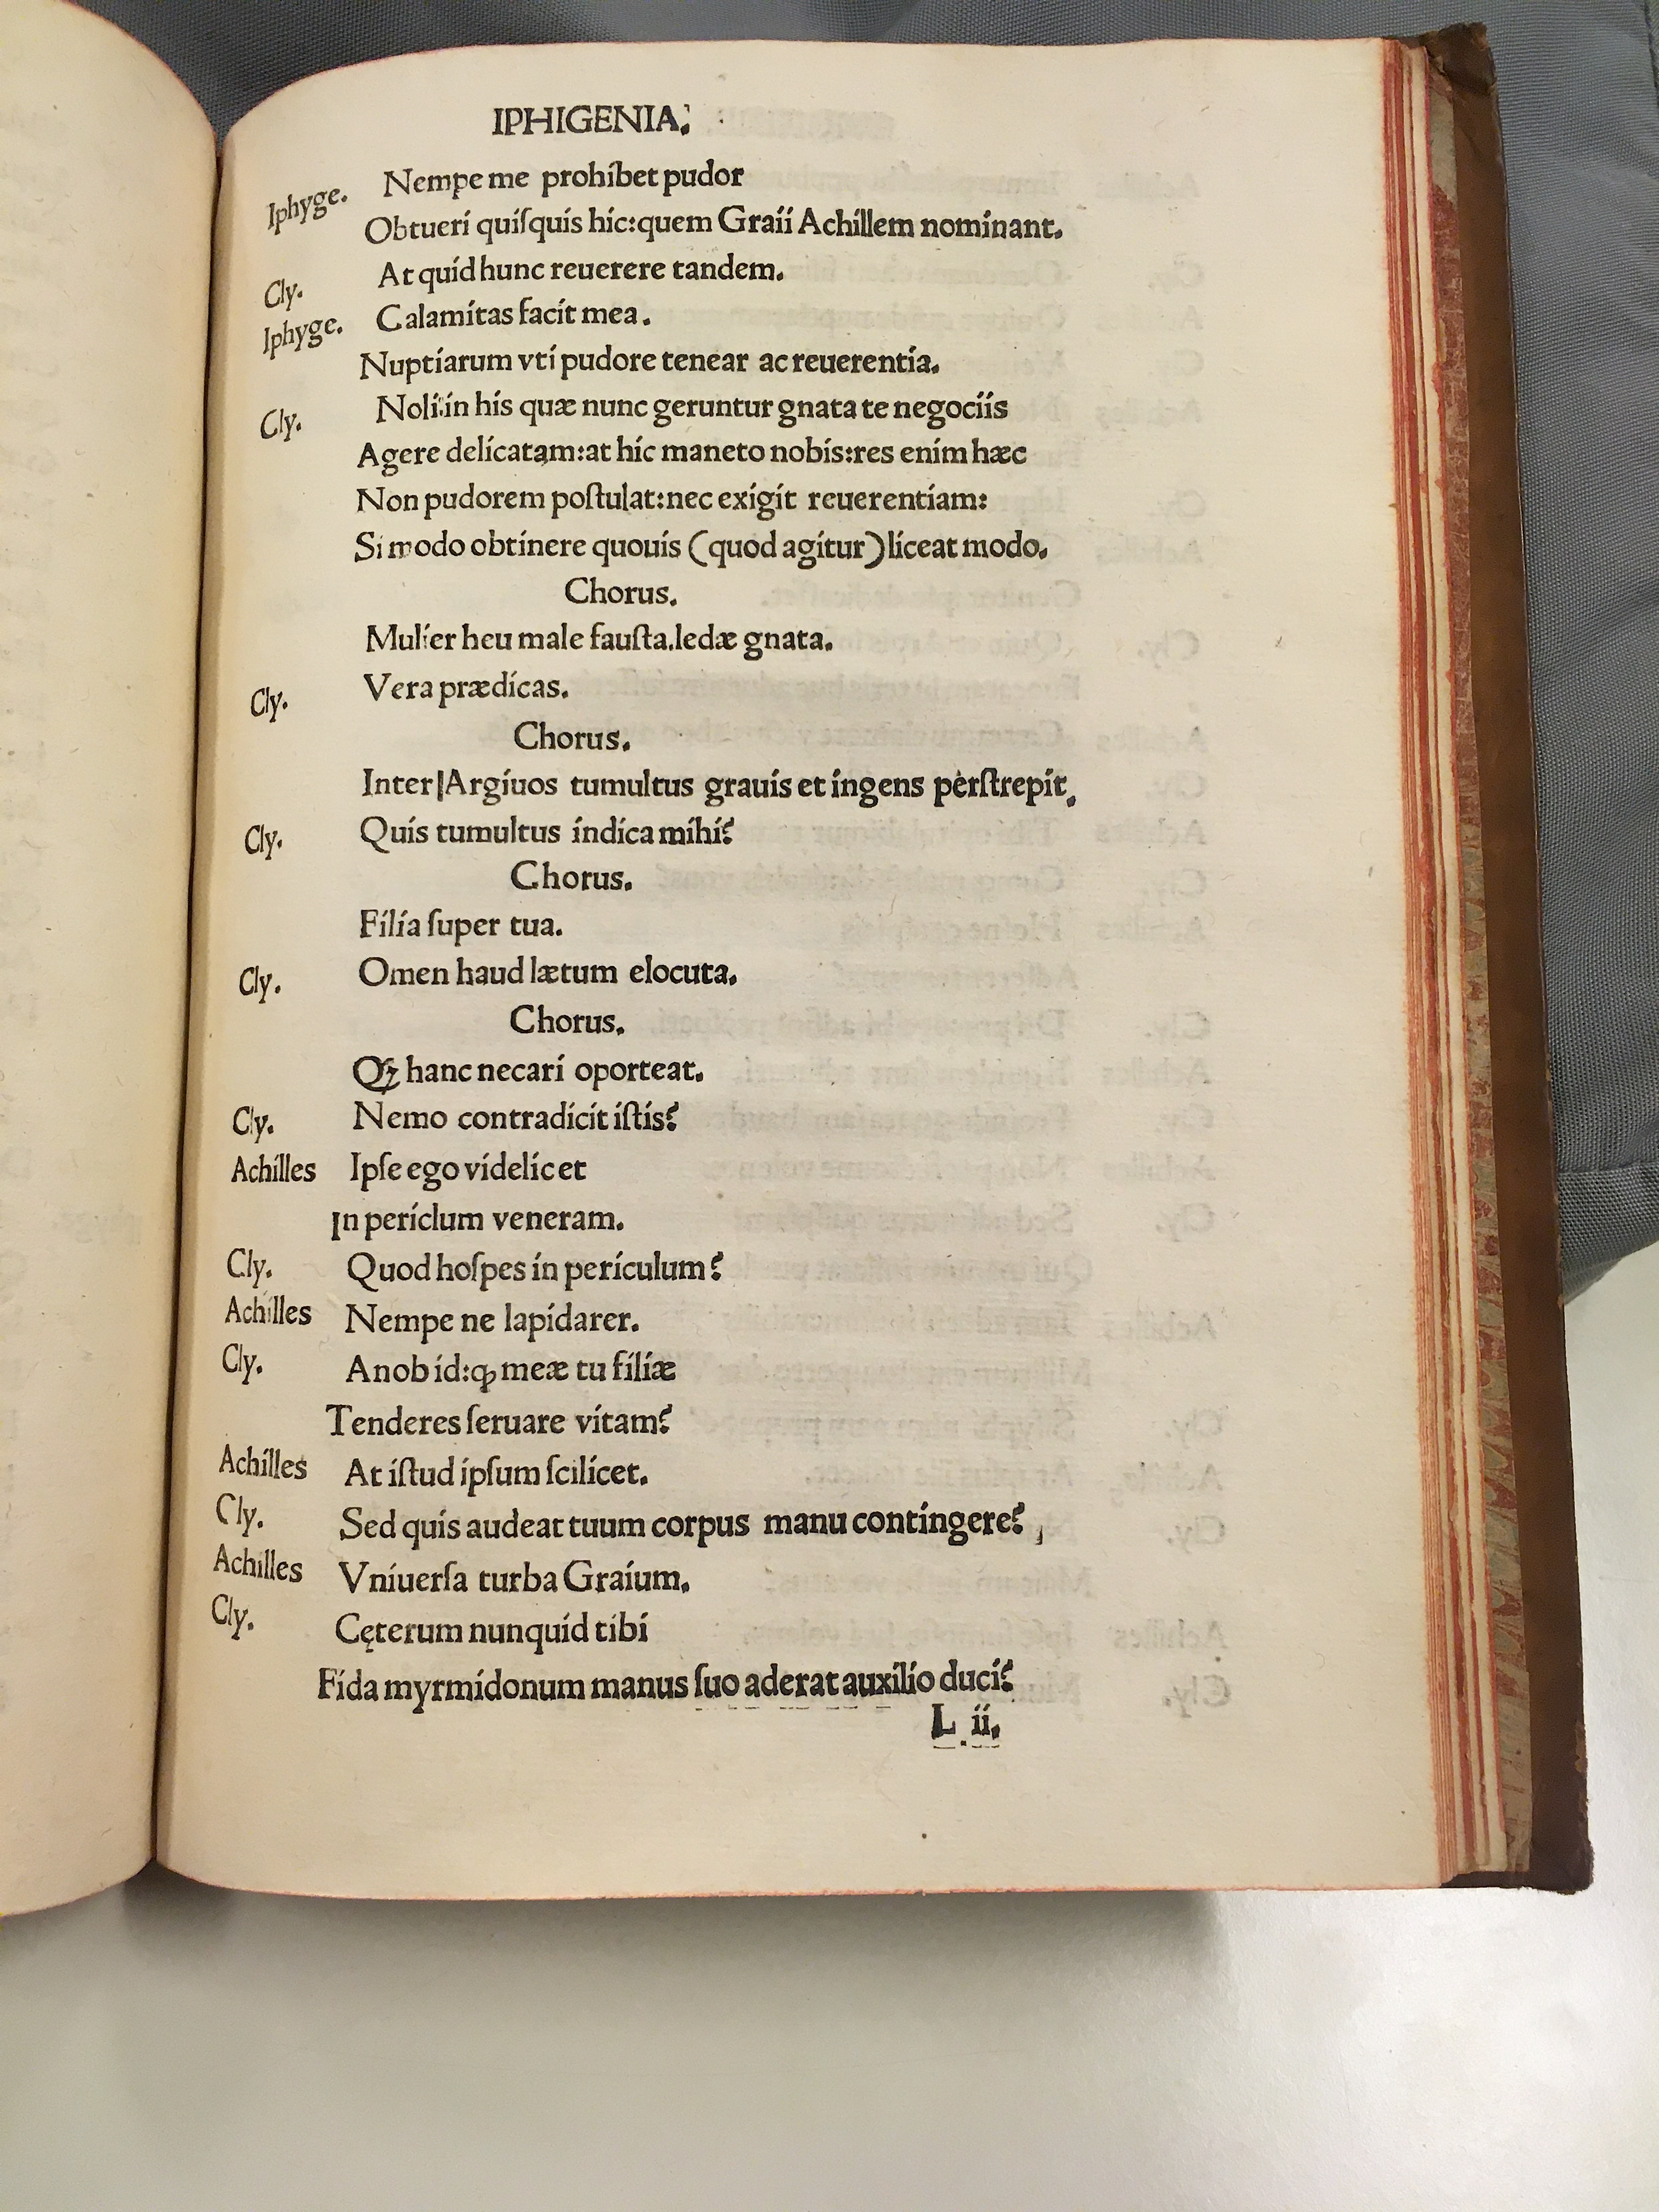 IPHIGENIA.
Iphyge. Nempe me prohibet pudor
Obtueri quiſquis hic:quem Graii Achillem nominant.
Cly. At quid hunc reuerere tandem.
Iphyge. Calamitas facit mea.
Nuptiarum vti pudore tenear ac reuerentia.
Cly. Noli:in his quæ nunc geruntur gnata te negociis
Agere delicatam:at hic maneto nobis:res enim hæc
Non pudorem poſtulat:nec exigit reuerentiam:
Si modo obtinere quouis (quod agitur) liceat modo.
Chorus.
Mulier heu male fauſta.ledæ gnata.
Cly. Vera prædicas.
Chorus.
Inter|Argiuos tumultus grauis et ingens perſtrepit.
Cly. Quis tumultus indica mihi?
Chorus.
Filia ſuper tua.
Cly. Omen haud lætum elocuta.
Chorus.
Qꝫ hanc necari oporteat.
Cly. Nemo contradicit iſtis?
Achilles Ipſe ego videlicet
In periclum veneram.
Cly. Quod hoſpes in periculum?
Achilles Nempe ne lapidarer.
Cly. An ob id:ꝙ meæ tu filiæ
Tenderes ſeruare vitam?
Achilles At iſtud ipſum ſcilicet.
Cly. Sed quis audeat tuum corpus manu contingere?
Achilles Vniuerſa turba Graium.
Cly. Cęterum nunquid tibi
Fida myrmidonum manus ſuo aderat auxilio duci?
L ii.